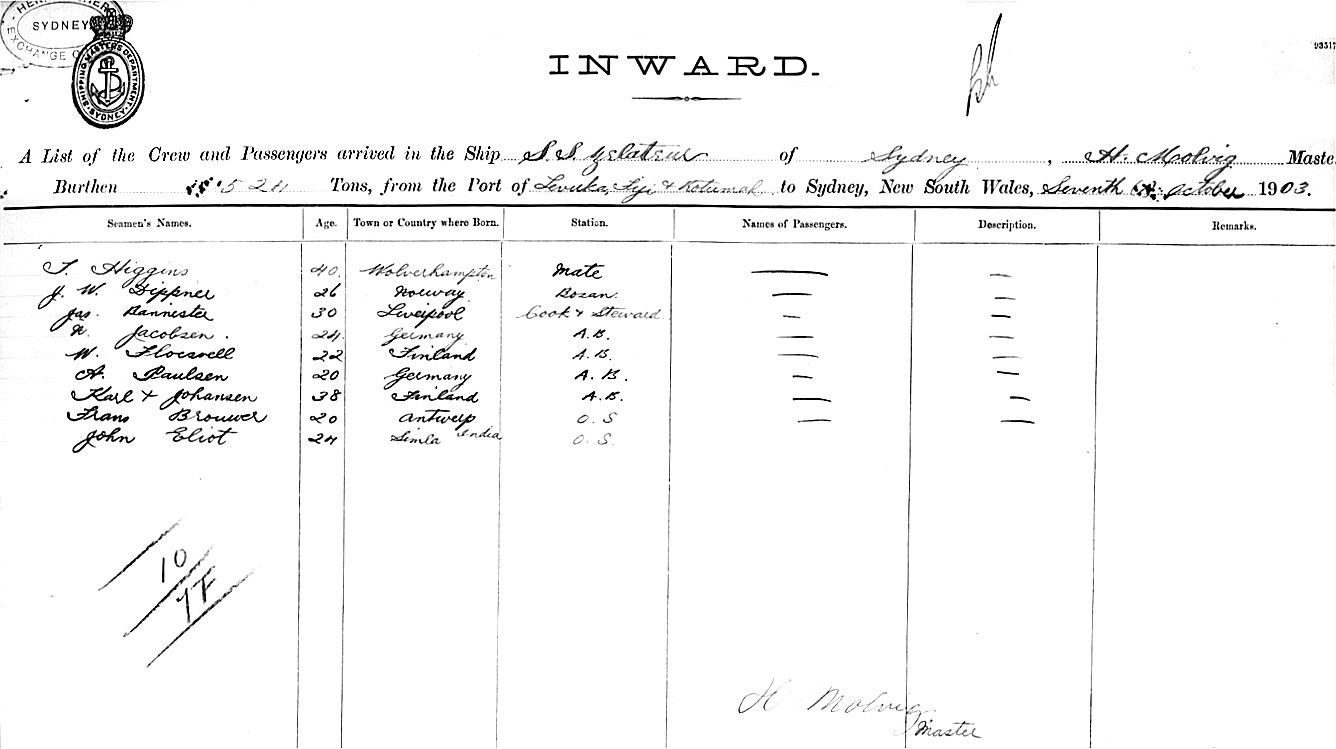 SYDNEY
EXCHANGE
SHIPPING MASTERS DEPARTMENT
SYDNEY
INWARD.
A List of the Crew and Passengers arrived in the Ship S.S. of Sydney, H. Molvig Maste
Burthen 524 Tons, from the Port of Levuka, Fiji & Rotumah to Sydney, New South Wales, Seventh October 1903.
Seamen's Names. Age. Town or Country where Born. Station. Names of Passengers. Description. Remarks.
T. Higgins 40. Wolverhampton Mate — —
J. W. Dippner 26 Norway Bosan. — —
Jas. Bannister 30 Liverpool Cook & Steward — —
N. Jacobsen. 24 Germany A.B. — —
W. 22 Finland A.B. — —
A. Paulsen 20 Germany A.B. — —
Karl Johansen 38 Finland A.B. — —
Frans Brouwer 20 Antwerp O.S — —
John Eliot 24 Simla India O.S.
10
7F
H Molvig
Master